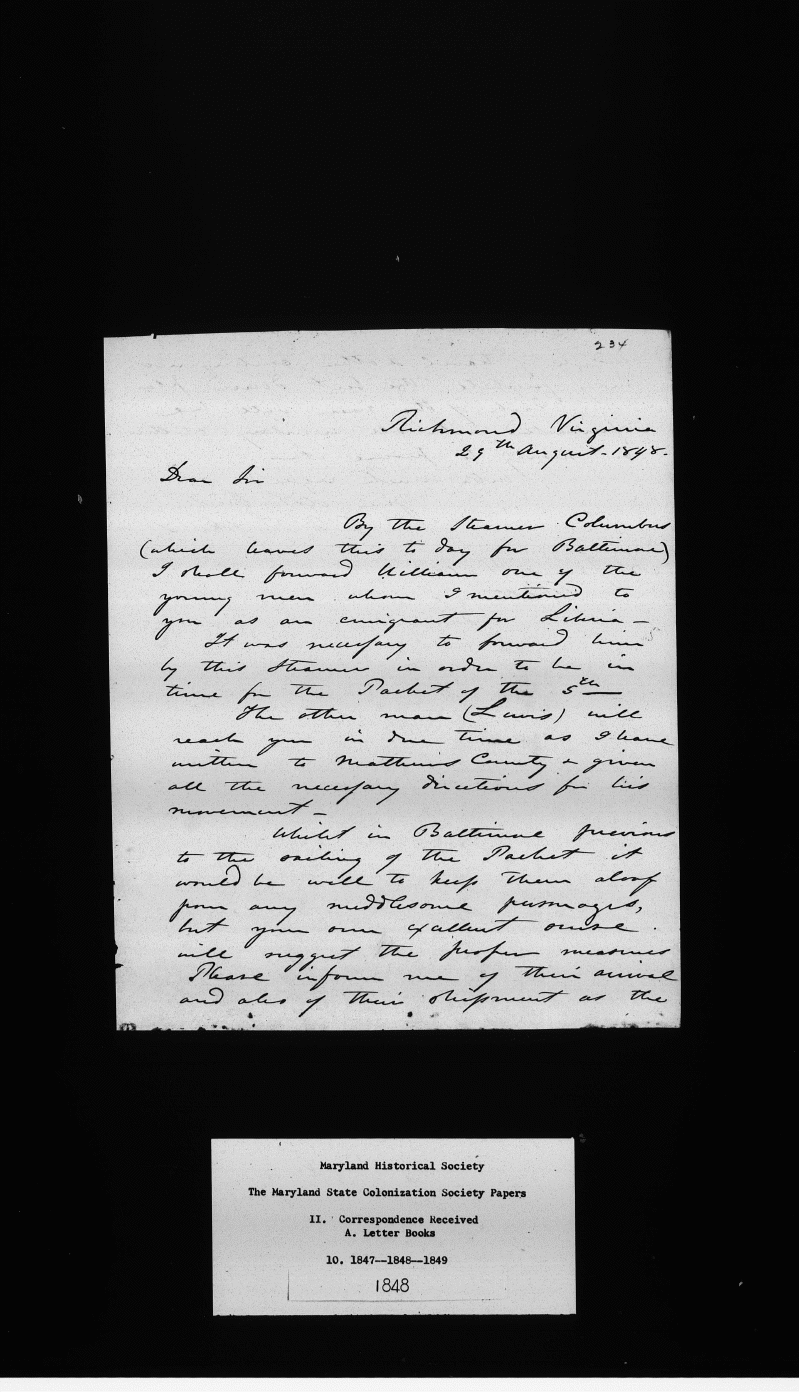 234
Richmond Virginia
29th August. 1848.
Dear Sir
By the Steamer Columbus
(which leaves this to day for Baltimore)
I shall forward William one of the
young men whom I mentioned to
you as an emigrant for Liberia —
It was necessary to forward him
by this Steamer in order to be in
time for the Packet of the 5th —
The other man (Lewis) will
reach you in due time as I have
written to Mathews County & given
all the necessary directions for his
movement —
Whilst in Baltimore previous
to the sailing of the Packet it
would be well to keep them aloof
from any meddlesome personages,
but your own excellent sense
will suggest the proper measures
Please inform me of their arrival
and also of their shipment as the
Maryland Historical Society
The Maryland State Colonization Society Papers
II. Correspondence Received
A. Letter Books
10. 1847--1848--1849
1848